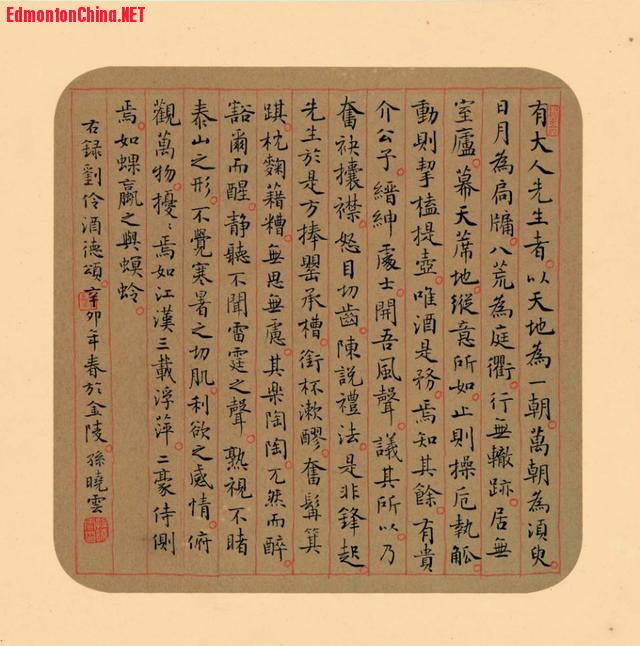 EdmontonChina.NET
有大人先生者。以天地為一朝。萬朝為須臾
日月為扃牖。八荒為庭衢。行無轍跡。居無
室廬。幕天蓆地。縱意所如。止則操卮執觚。
動則挈榼提壺。唯酒是務。焉知其餘。有貴
介公子。縉紳處士。開吾風聲。議其所以。乃
奮袂攘襟。怒目切齒。陳說禮法。是非鋒起。
先生於是方捧罌承槽。銜杯漱醪。奮髯箕
踑。枕麴藉糟。無思無慮。其樂陶陶。兀然而醉。
豁爾而醒。靜聽不聞雷霆之聲。熟視不睹
泰山之形。不覺寒暑之切肌。利欲之感情。俯
觀萬物。擾擾焉如江漢三載浮萍。二豪侍側
焉。如蜾蠃之與螟蛉。
右錄劉伶酒德頌。辛卯年春於金陵。孫曉雲